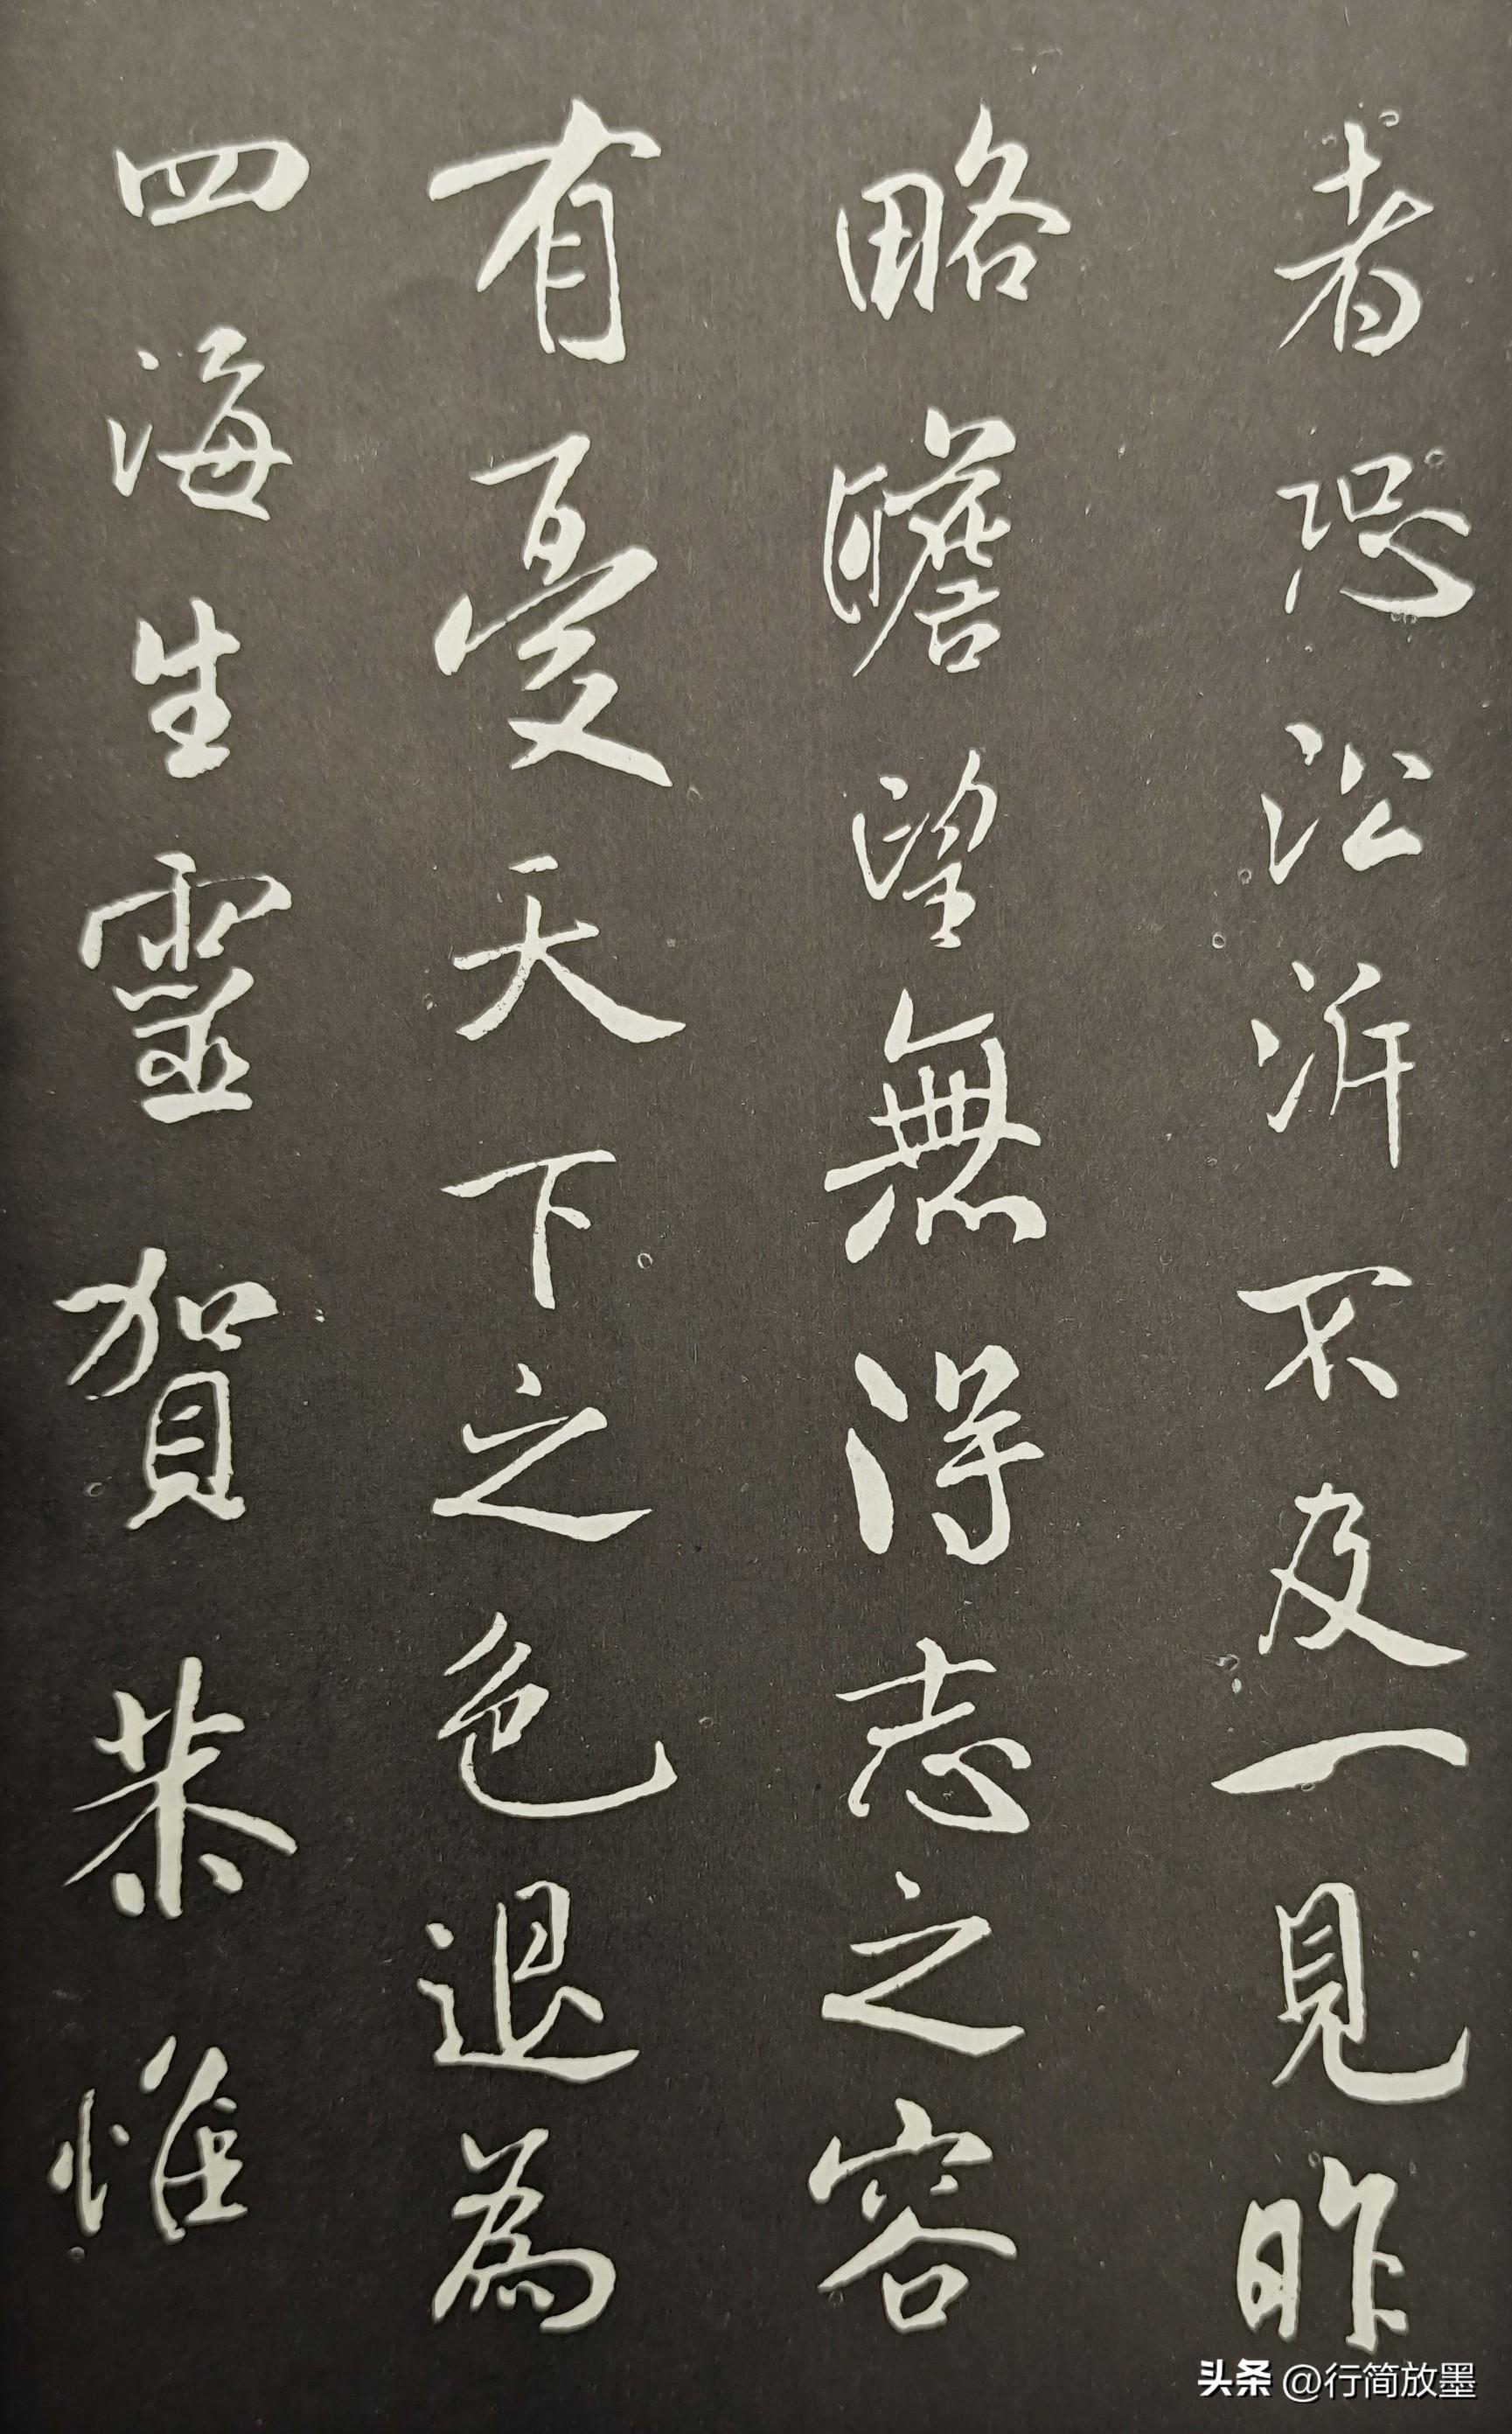 者恐訟泝不及一見昨
略瞻望無得志之容
有憂天下之色退為
四海生靈賀恭惟
头条 @行简放墨